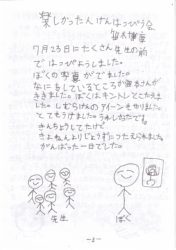 楽しかったけんはっぴょう会
7月23日にたくさん先生の前
ではっぴょうしました。
ぼくの写真がでました。
なにをしているところか皆さんが
ききました。ぼくはキントレとこたえま
した。しむらけんのアイーンをやりまし
とてもうけました。うれしかったでも
きんちょうしてたけど
きょねんよりじょうずにつたえられました。
がんばった一日でした。
先生
ぼく